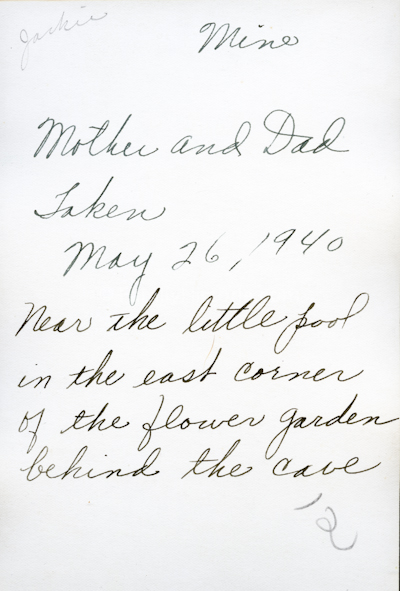 Jackie
Mine
Mother and Dad
Taken
May 26, 1940
Near the little pool
in the east corner
of the flower garden
behind the cave
12